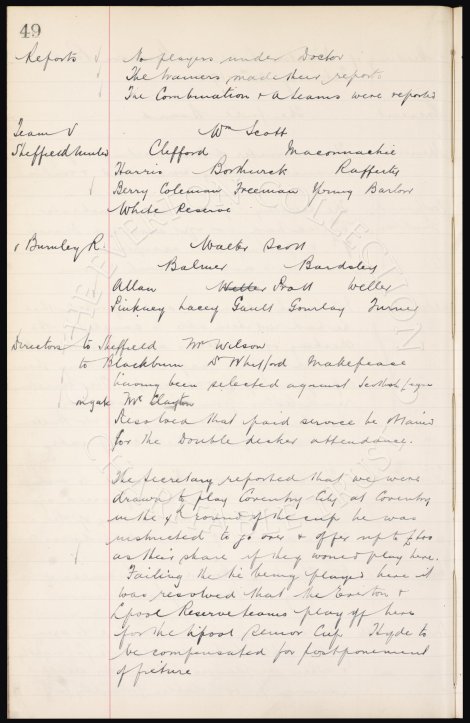 49
Reports No players under Doctor
The trainers made their reports
The Combination & A teams were reported
Team V Wm Scott
Sheffield United Clifford Maconnachie
Harris Borthwick Rafferty
Berry Coleman Freeman Young Barlow
White Reserve
v Burnley R. Walter Scott
Balmer Bardsley
Allan Weller Pratt Weller
Pinkney Lacey Gault Gourlay Turner
Directors to Sheffield Mr Wilson
to Blackburn Dr Whitford Makepeace
having been selected against Scottish
Mr Clayton
Resolved that paid service be
for the Double decker attendance.
The Secretary reported that we were
drawn to play Coventry City at Coventry
in the 4th round of the cup he was
instructed to go over & offer up to
as their share if they would play here.
Failing the tie being played here it
was resolved that the Everton &
Lpool Reserve teams play off here
for the Lpool Senior Cup Hyde to
be compensated for postponement
of fixture
THE EVERTON COLLECTION